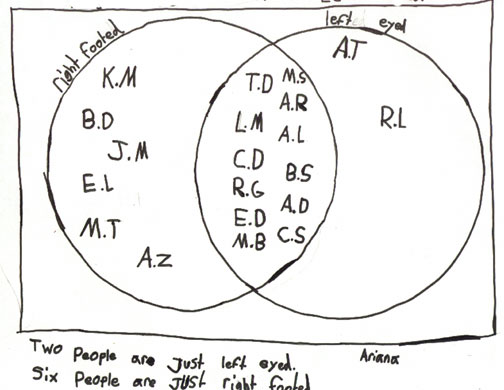 right footed
left eyed
K.M
B.D
J.M
E.L
M.T
A.Z
T.D
M.S
A.R
L.M
A.L
C.D
B.S
R.G
A.D
E.D
C.S
M.B
A.T
R.L
Two People are Just left eyed.
Ariana
Six People are Just right footed